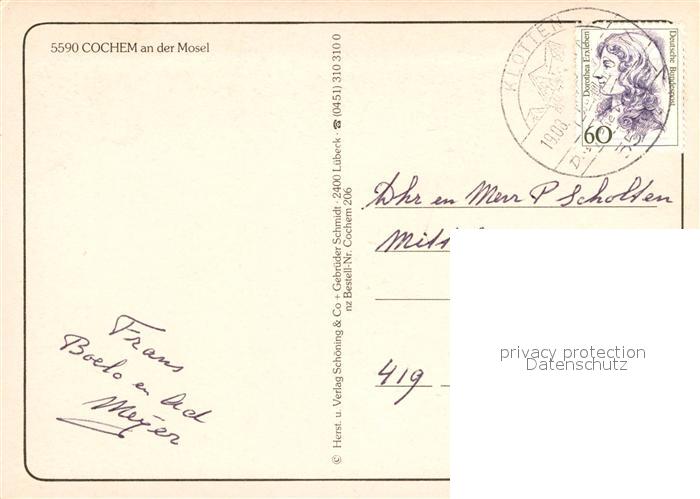 5590 COCHEM an der Mosel
KLOTTEN
19.08
Deutsche Bundespost
Dorothea Erxleben
60
© Herst. u. Verlag Schöning & Co + Gebrüder Schmidt · 2400 Lübeck · ☎ (0451) 310 310 0
nz Bestell-Nr. Cochem 206
Dhr en Mevr P Scholten
419
privacy protection
Datenschutz
Frans
en Ad
Meyer